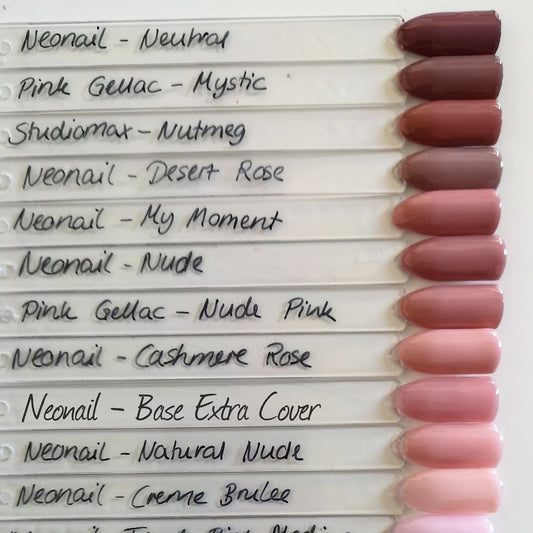 Neonail - Neutral
Pink Gellac - Mystic
Studiomax - Nutmeg
Neonail - Desert Rose
Neonail - My Moment
Neonail - Nude
Pink Gellac - Nude Pink
Neonail - Cashmere Rose
Neonail - Base Extra Cover
Neonail - Natural Nude
Neonail - Creme Brulee